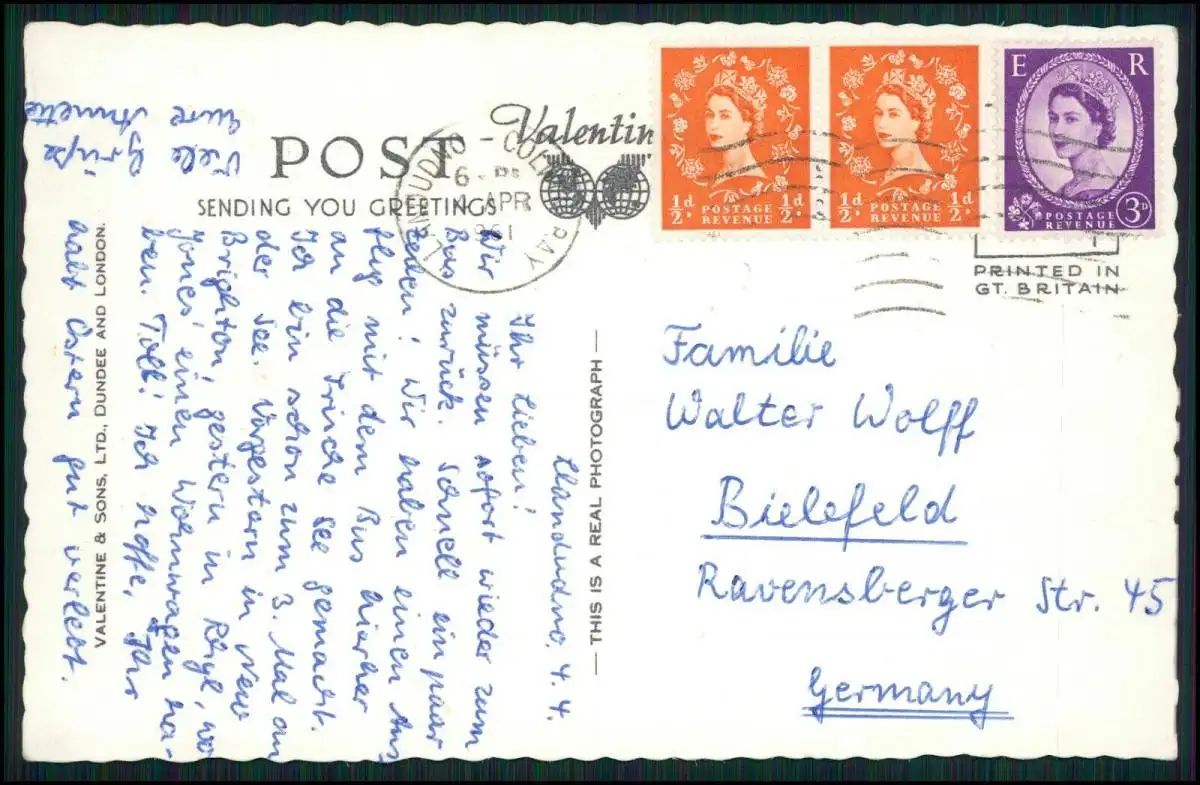 POST
- Valentin
SENDING YOU GREETINGS
LLANDUDNO COLWYN BAY
6 - PM
4 APR
1961
½d POSTAGE REVENUE ½d
½d POSTAGE REVENUE ½d
E R
POSTAGE REVENUE 3D
PRINTED IN
GT. BRITAIN
Llandudno, 4. 4.
Ihr Lieben!
Wir müssen sofort wieder zum
Bus zurück. Schnell ein paar
Zeilen! Wir haben einen Aus-
flug mit dem Bus hierher
an die Irische See gemacht.
Ich bin schon zum 3. Mal an
der See. Vorgestern in New
Brighton, gestern in Rhyl, wo
Jones' einen Wohnwagen ha-
ben. Toll! Ich hoffe, Ihr
habt Ostern gut verlebt.
Viele Grüße
Eure Annette
VALENTINE & SONS, LTD., DUNDEE AND LONDON.
— THIS IS A REAL PHOTOGRAPH —
Familie
Walter Wolff
Bielefeld
Ravensberger Str. 45
Germany